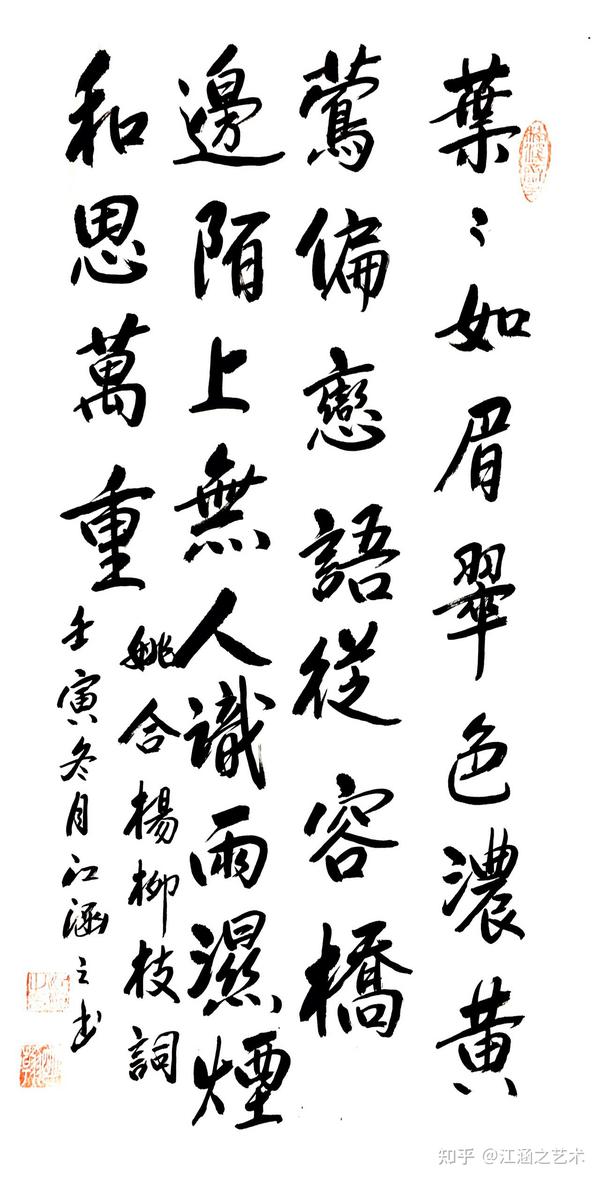 葉〻如眉翠色濃黄
鶯偏戀語從容橋
邊陌上無人識雨濕煙
和思萬重
姚合楊柳枝詞
壬寅冬月江涵之書
知乎 @江涵之艺术